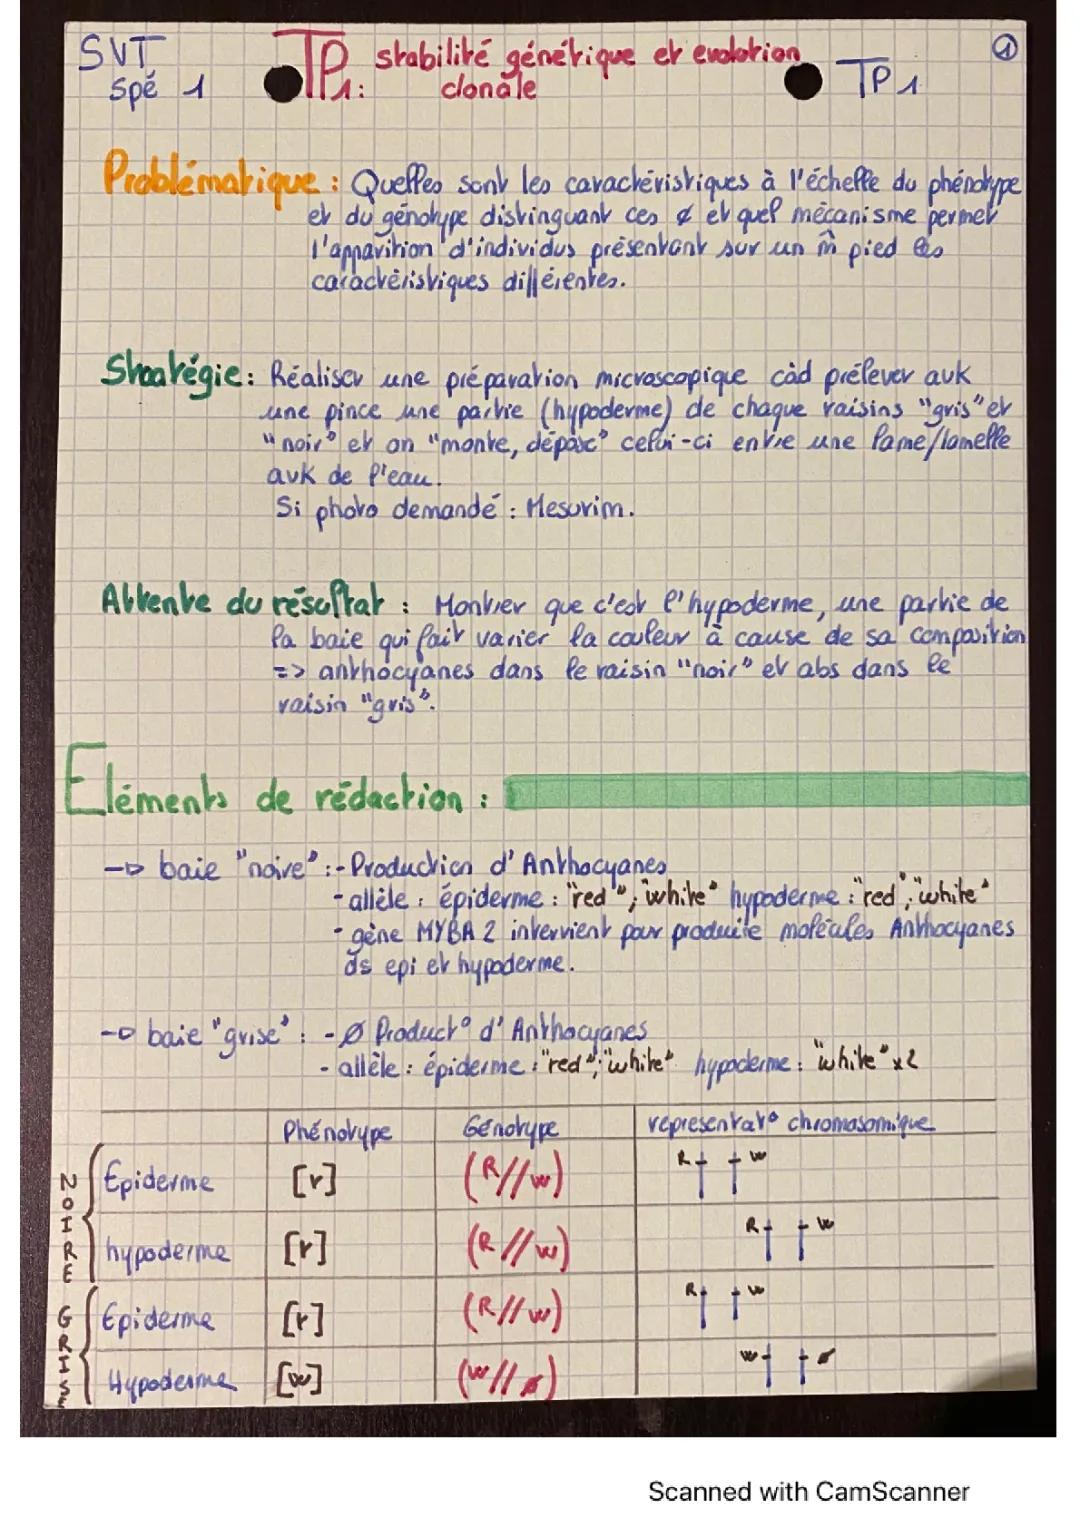 SVT
spé 1
TP1: stabilité génétique et evolotion
clonale
TP1
1
Problématique : Quelles sont les caractéristiques à l'échelle du phénotype
et du génotype distinguant ces ≠ et quel mécanisme permet
l'apparition d'individus présentant sur un m̂ pied les
caractéristiques différentes.
Straatégie : Réaliser une préparation microscopique càd prélever avk
une pince une partie (hypoderme) de chaque raisins "gris" et
"noir" et on "monte, dépose" celui-ci entre une lame/lamelle
avk de l'eau.
Si photo demandé : Mesurim.
Attente du résultat : Montrer que c'est l'hypoderme, une partie de
la baie qui fait varier la couleur à cause de sa composition
=> anthocyanes dans le raisin "noir" et abs dans le
raisin "gris".
Eléments de rédaction :
→ baie "noire" : - Production d'Anthocyanes
- allèle : épiderme : "red" ; "white" hypoderme : "red" ; "white"
- gène MYBA 2 intervient pour produire molécules Anthocyanes
ds epi et hypoderme.
→ baie "grise" : - Ø Product° d'Anthocyanes
- allèle : épiderme : "red" ; "white" hypoderme : "white" x2
Phénotype Génotype représentat° chromosomique
NOIRE
Epiderme [r] (R//w) R w
hypoderme [r] (R//w) R w
GRISE
Epiderme [r] (R//w) R w
Hypoderme [w] (w//ø) w ø
Scanned with CamScanner